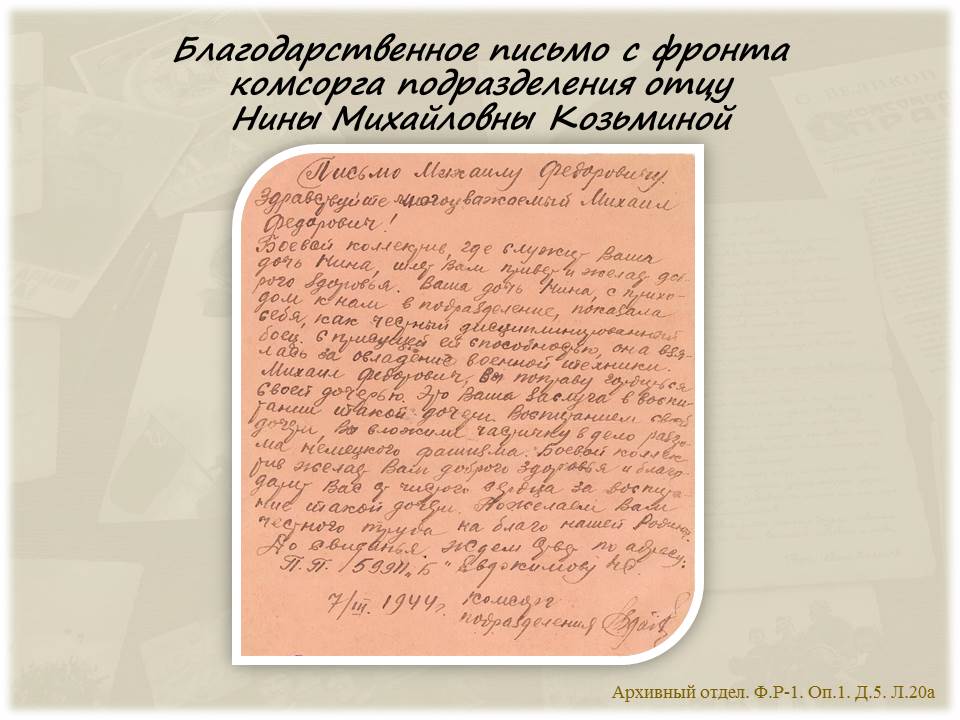 Благодарственное письмо с фронта
комсорга подразделения отцу
Нины Михайловны Козьминой
Письмо Михаилу Федоровичу.
Здравствуйте многоуважаемый Михаил
Федорович!
Боевой коллектив, где служит Ваша
дочь Нина, шлет Вам привет и желает доб-
рого здоровья. Ваша дочь Нина, с прихо-
дом к нам в подразделение, показала
себя, как честный дисциплинированный
боец. С присущей ей способностью, она взя-
лась за овладение военной техники.
Михаил Федорович, Вы поправу гордиться
своей дочерью. Это Ваша заслуга в воспи-
тании такой дочери. Воспитанием своей
дочери, Вы вложили частичку в дело разгро-
ма немецкого фашизма. Боевой коллек-
тив желает Вам доброго здоровья и благо-
дарит Вас от чистого сердца за воспита-
ние такой дочери. Пожелаем Вам
честного труда на благо нашей Родины.
До свиданья. Ждем Ответ по адресу:
П.П. "Б" Евдокимову
7/III. 1944г. Комсорг
подразделения
Архивный отдел. Ф.Р-1. Оп.1. Д.5. Л.20а